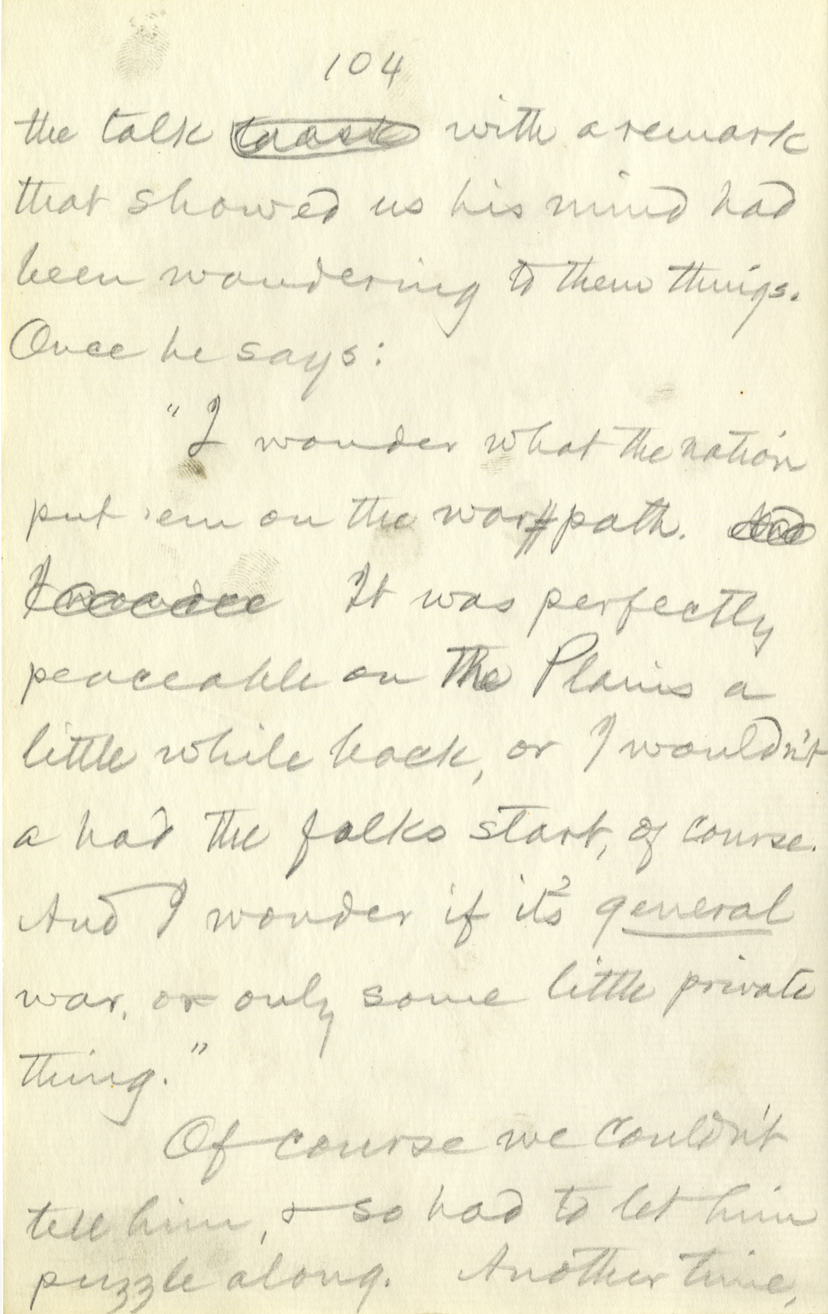 104
the talk with a remark
that showed us his mind had
been wandering to them things.
Once he says:
"I wonder what the nation
put 'em on the war#path.
It was perfectly
peaceable on the Plains a
little while back, or I wouldn't
a had the folks start, of course.
And I wonder if it's general
war, or only some little private
thing."
Of course we couldn't
tell him, & so had to let him
puzzle along. Another time,